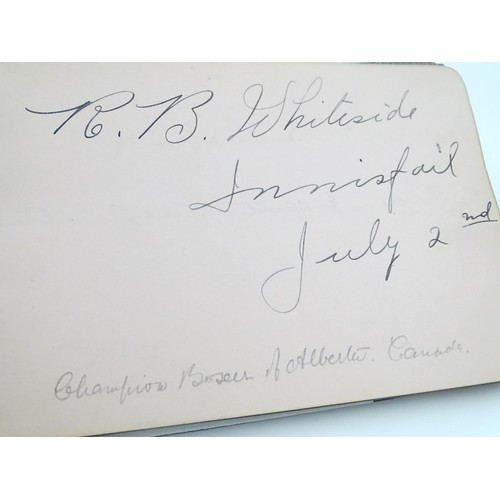 R. B. Whiteside
Innisfail
July 2nd
Champion Boxer of Alberta. Canada.